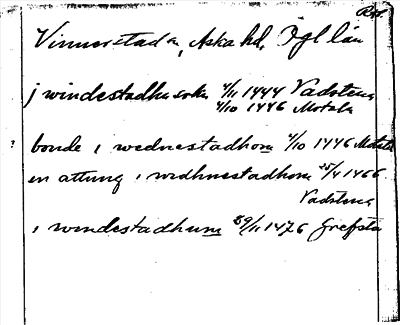 Rap.
Vinnerstad sn, Aska hd, Ögl län
j windestadha sokn 4/11 1444 Vadstena
4/10 1446 Motala
? bonde i wednestadhom 4/10 1446 Motala
en attung i wædhnestadhom 25/4 1466
Vadstena
i windestadhum 29/11 1476 Grefsta